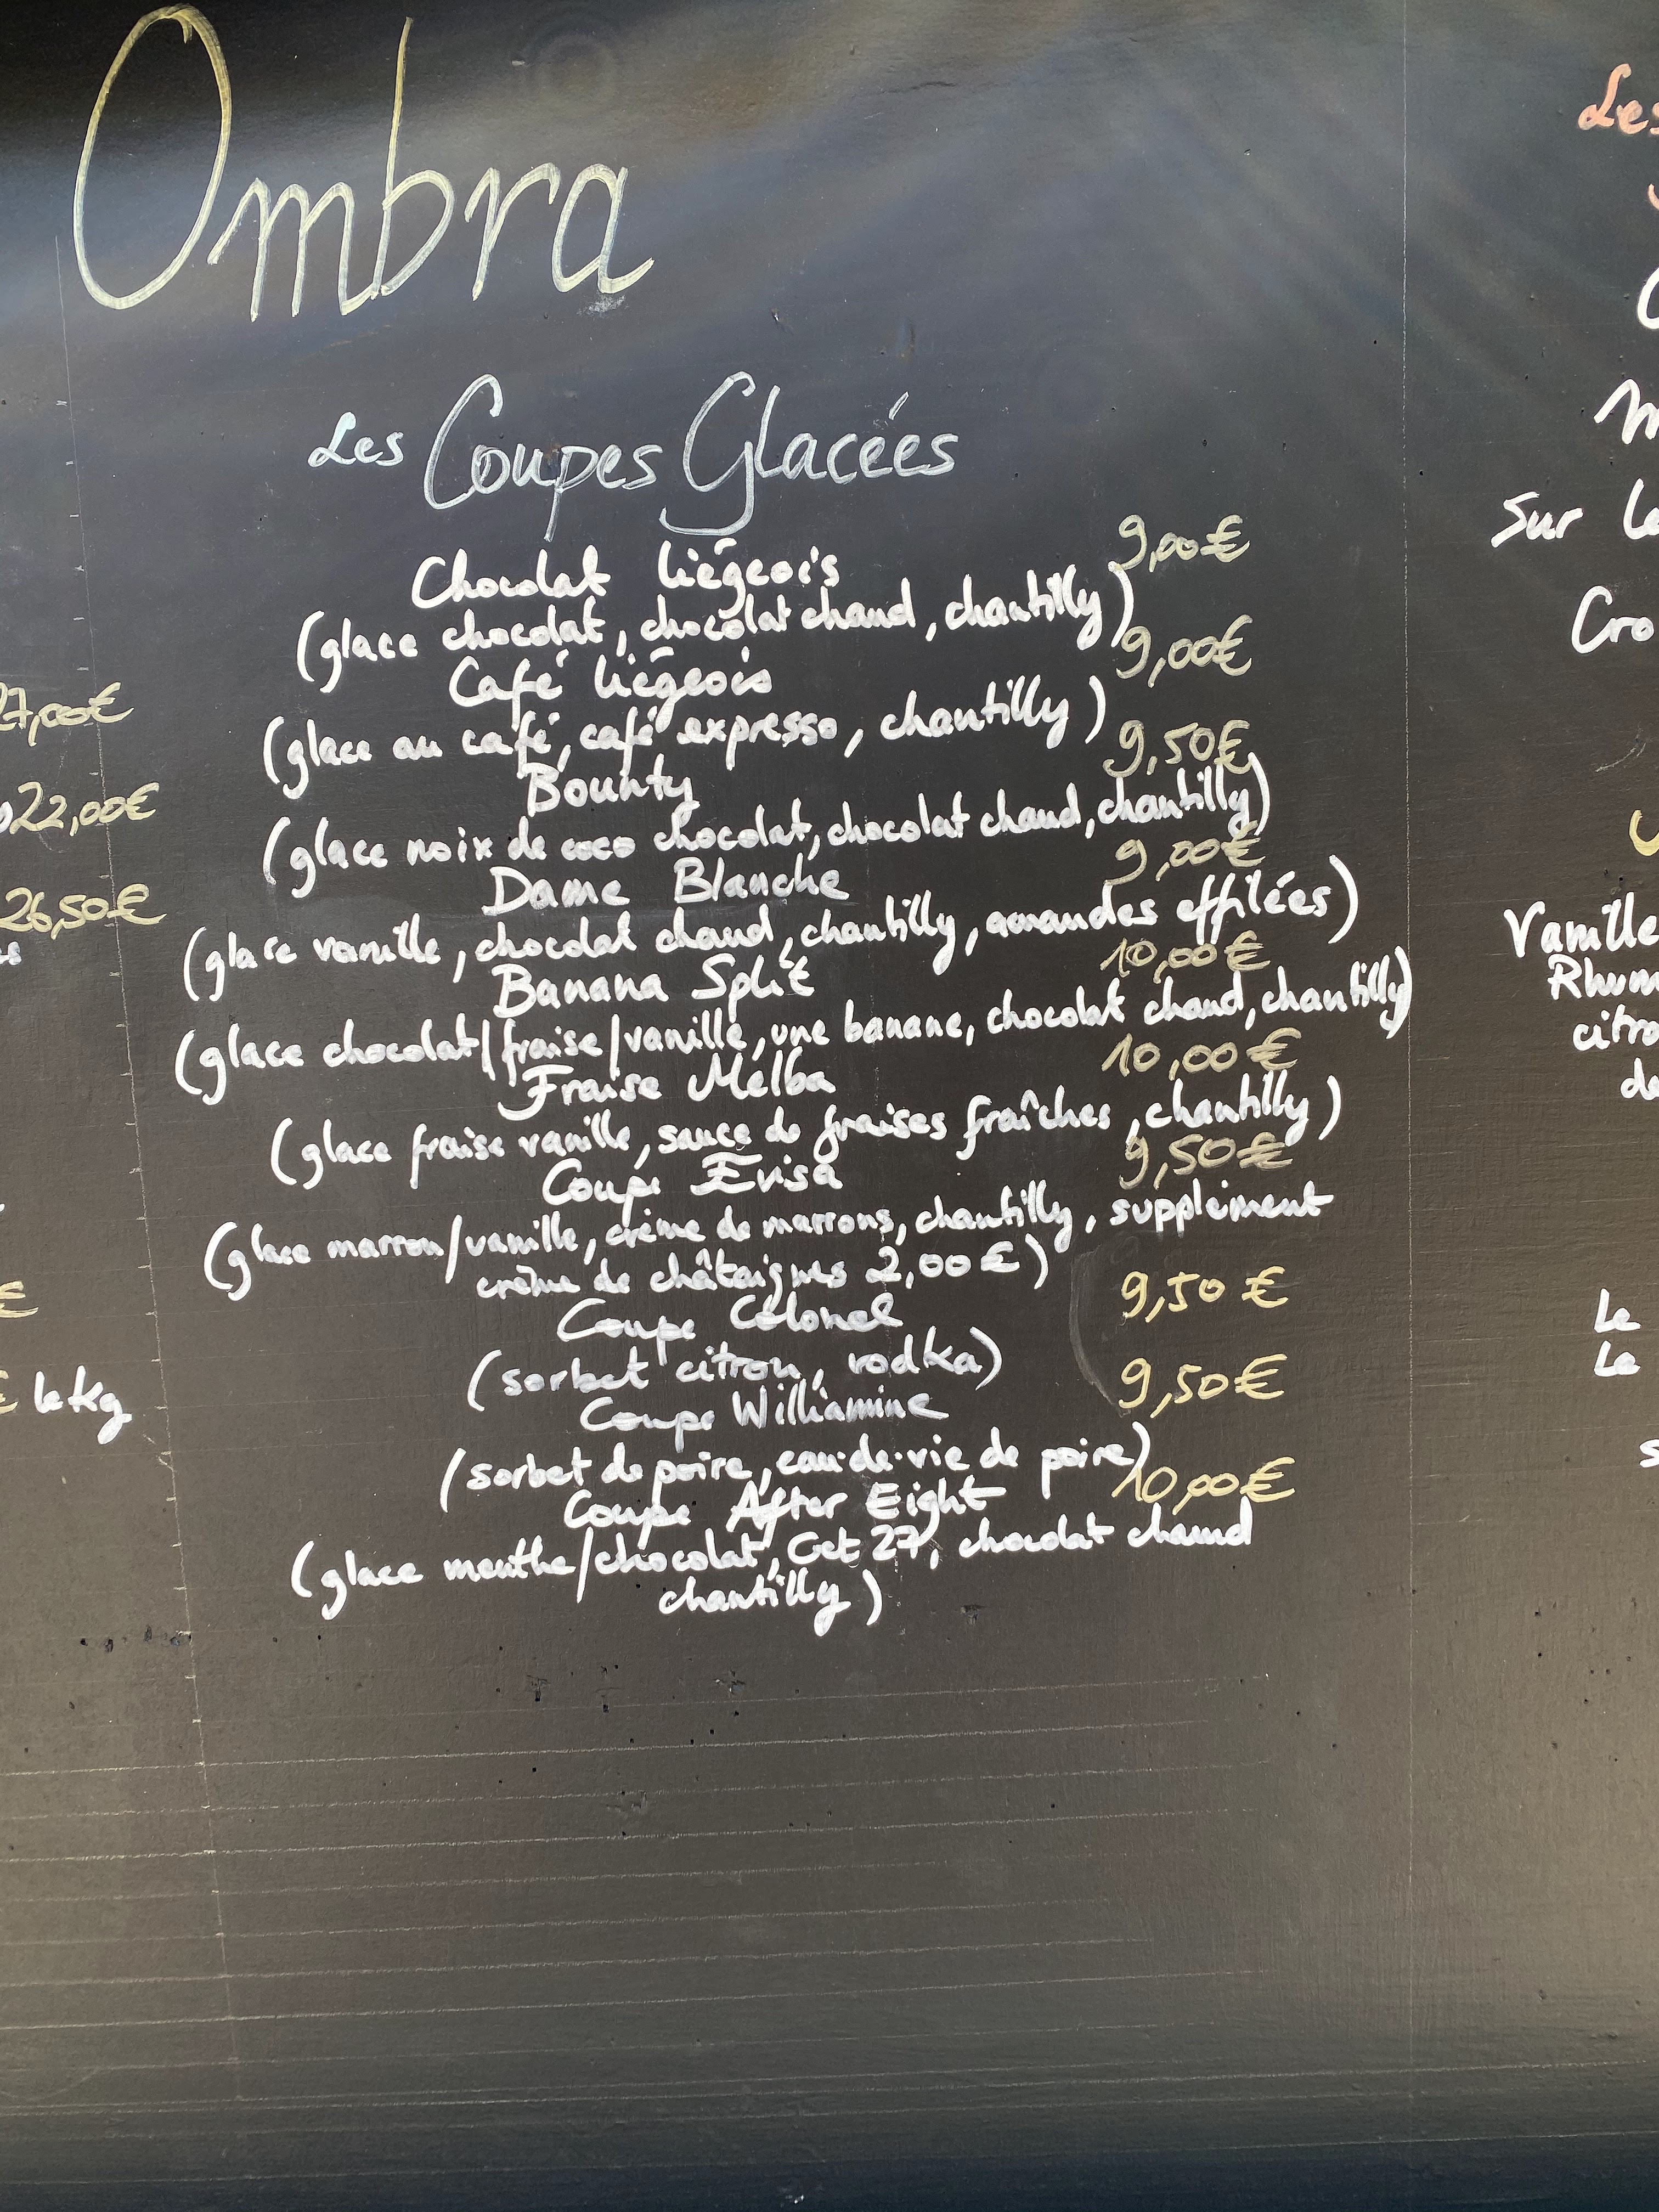 Ombra
Les Coupes Glacées
Chocolat liégeois 9,00€
(glace chocolat, chocolat chaud, chantilly)
Café liégeois 9,00€
(glace au café, café expresso, chantilly)
Bounty 9,50€
(glace noix de coco chocolat, chocolat chaud, chantilly)
Dame Blanche 9,00€
(glace vanille, chocolat chaud, chantilly, amandes effilées)
Banana Split 10,00€
(glace chocolat/fraise/vanille, une banane, chocolat chaud, chantilly)
Fraise Melba 10,00€
(glace fraise vanille, sauce de fraises fraîches, chantilly)
Coupe Evisa 9,50€
(glace marron/vanille, crème de marrons, chantilly, supplément
crème de châtaignes 2,00€)
Coupe Colonel 9,50€
(sorbet citron, vodka)
Coupe Williamine 9,50€
(sorbet de poire, eau-de-vie de poire)
Coupe After Eight 10,00€
(glace menthe/chocolat, Get 27, chocolat chaud
chantilly)
27,00€
22,00€
26,50€
es
€
€ le kg
Les
Sur le
Cro
Vanille
Rhum
citro
de
Le
Le